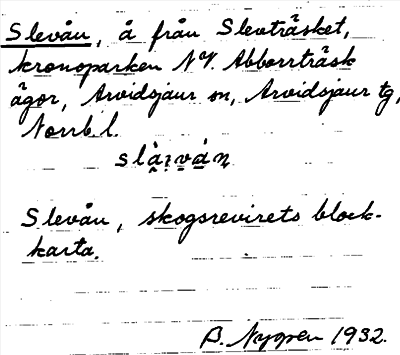 Slevån, å från Slevträsket,
kronoparken NV. Abborrträsk
ägor, Arvidsjaur sn, Arvidsjaur tg,
Norrb. l.
slà̯i̯vá̠n̥
Slevån, skogsrevirets block-
karta.
B. Nygren 1932.